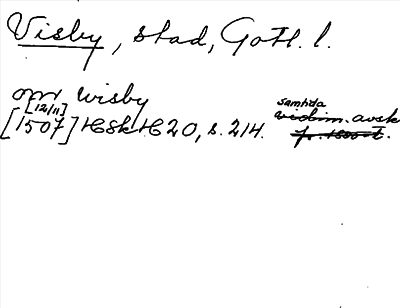 Visby, stad, Gotl. l.
om Wisby
[12/11]
samtida
[1507] HSH 20, s. 214. vidim. avsk
fr. 1500-t.